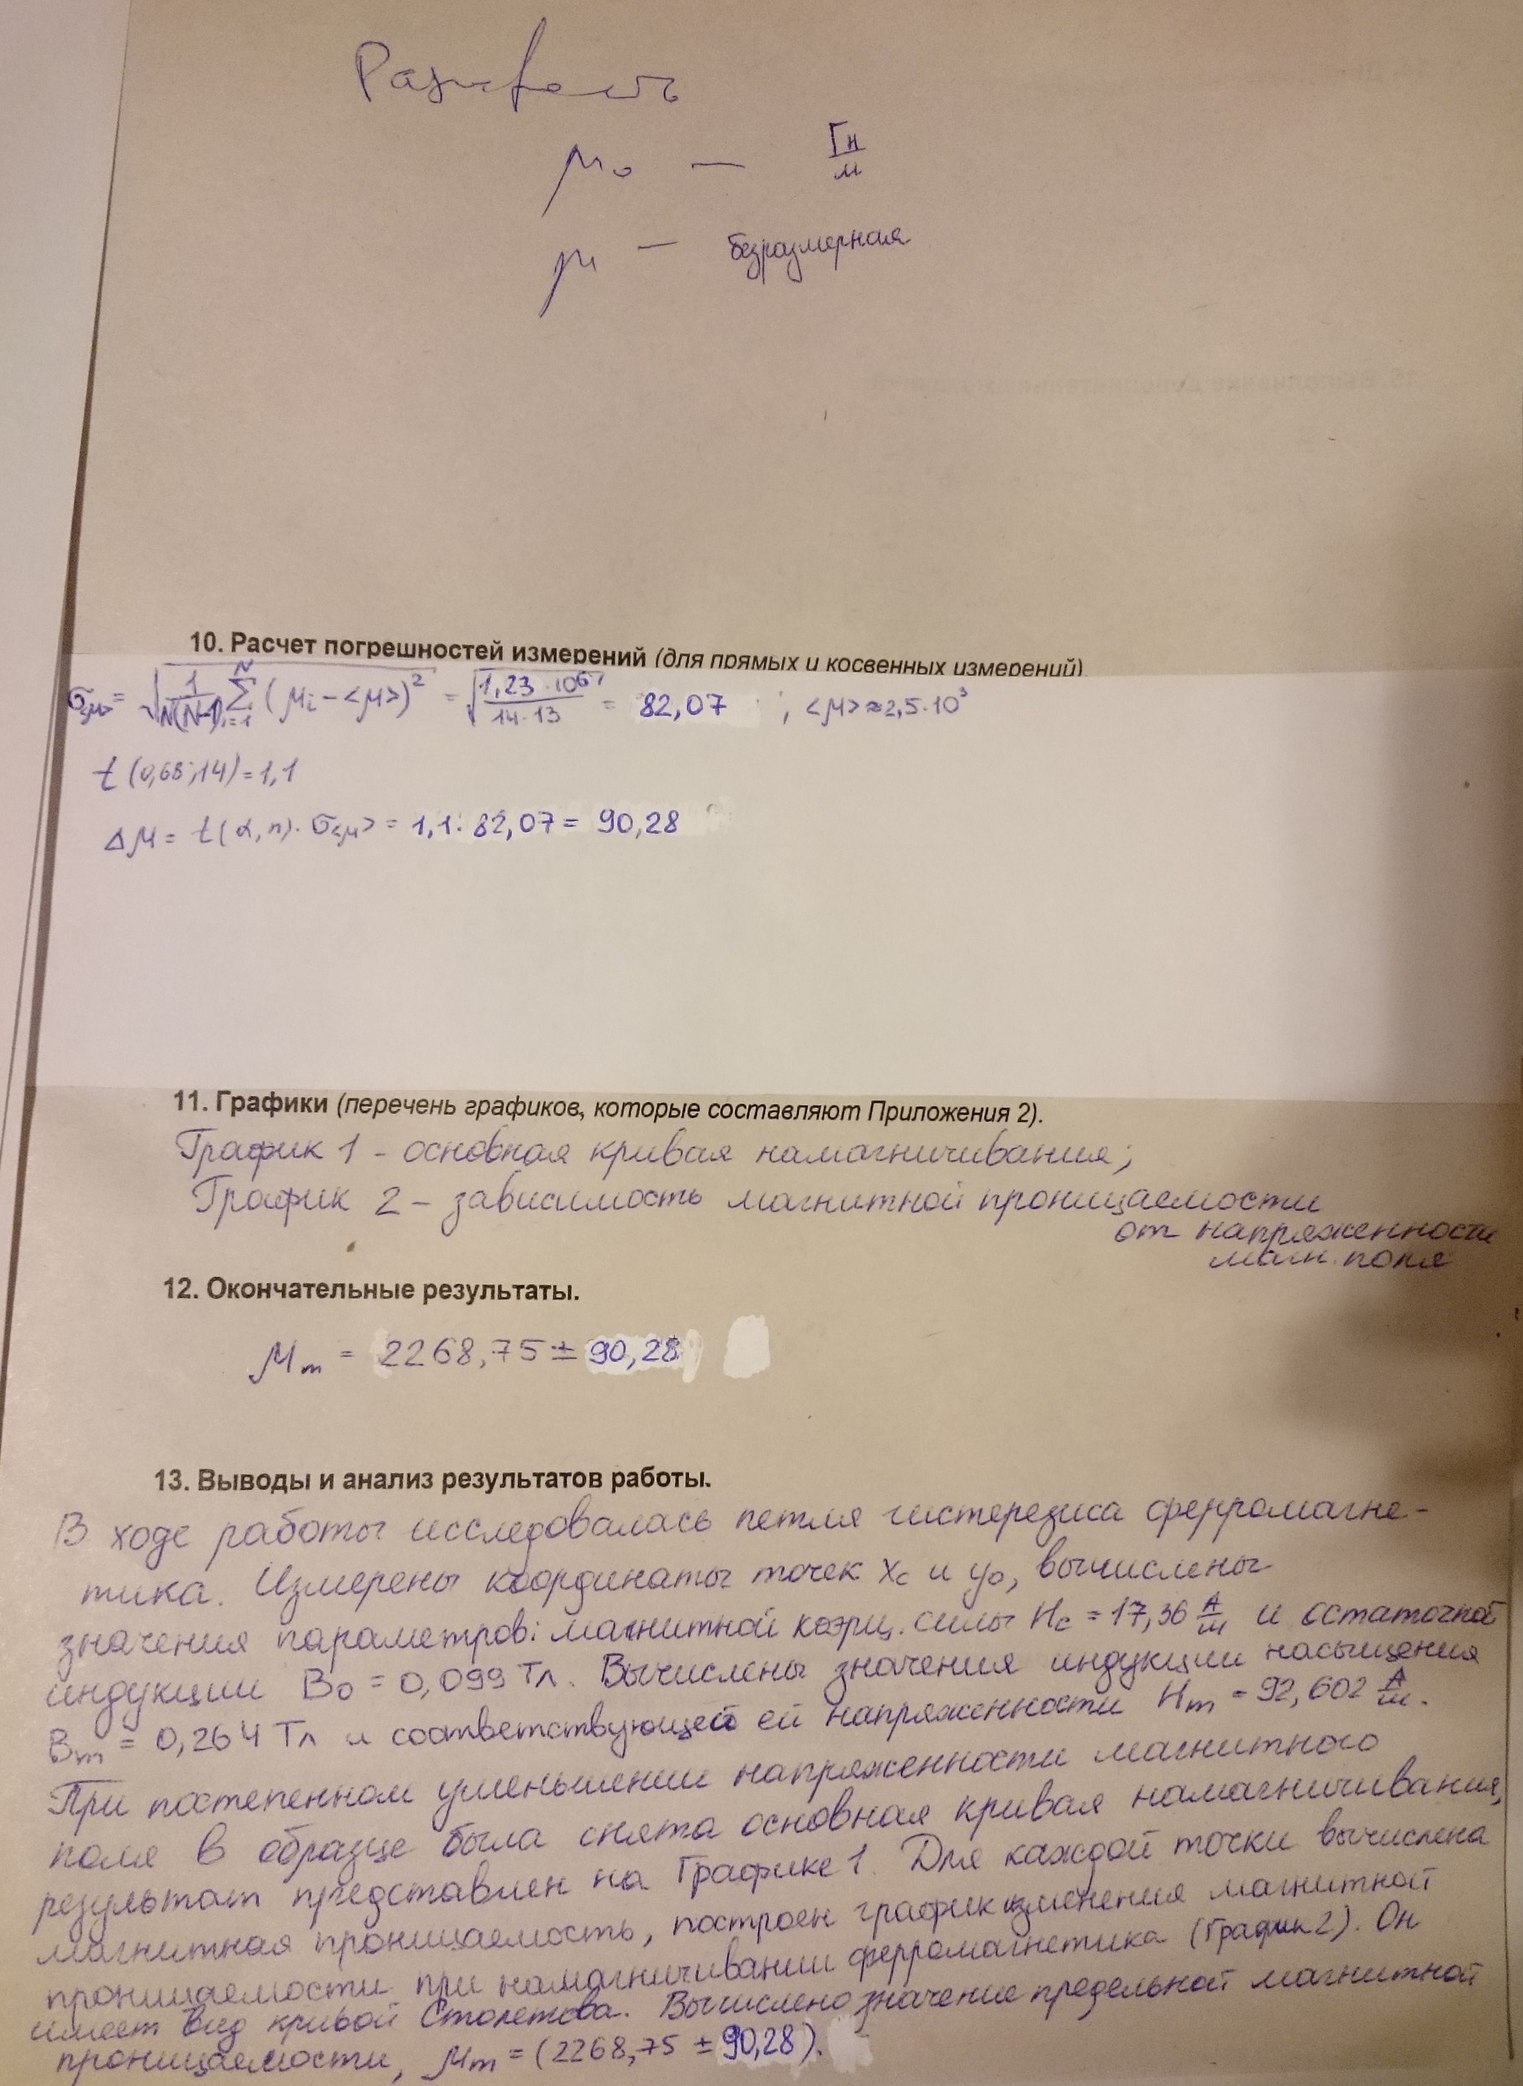 Размерность
μ₀ — Гн/м
μ — безразмерная
10. Расчет погрешностей измерений (для прямых и косвенных измерений)
σ<μ> = √(1/(N(N-1)) Σ_{i=1}^{N} (μi - <μ>)²) = √(1,23·10⁶/(14·13)) = 82,07 ; <μ> ≈ 2,5·10³
t(0,68;14) = 1,1
Δμ = t(α,n)·σ<μ> = 1,1·82,07 = 90,28
11. Графики (перечень графиков, которые составляют Приложения 2).
График 1 - основная кривая намагничивания;
График 2 - зависимость магнитной проницаемости
от напряженности
магн. поля
12. Окончательные результаты.
μm = 2268,75 ± 90,28
13. Выводы и анализ результатов работы.
В ходе работы исследовалась петля гистерезиса ферромагне-
тика. Измерены координаты точек xс и y₀, вычислены
значения параметров: магнитной коэрц. силы Hс = 17,36 А/м и остаточной
индукции B₀ = 0,099 Тл. Вычислены значения индукции насыщения
Bm = 0,264 Тл и соответствующей ей напряженности Hm = 92,602 А/м.
При постепенном уменьшении напряженности магнитного
поля в образце была снята основная кривая намагничивания,
результат представлен на Графике 1. Для каждой точки вычислена
магнитная проницаемость, построен график изменения магнитной
проницаемости при намагничивании ферромагнетика (График 2). Он
имеет вид кривой Столетова. Вычислено значение предельной магнитной
проницаемости, μm = (2268,75 ± 90,28).